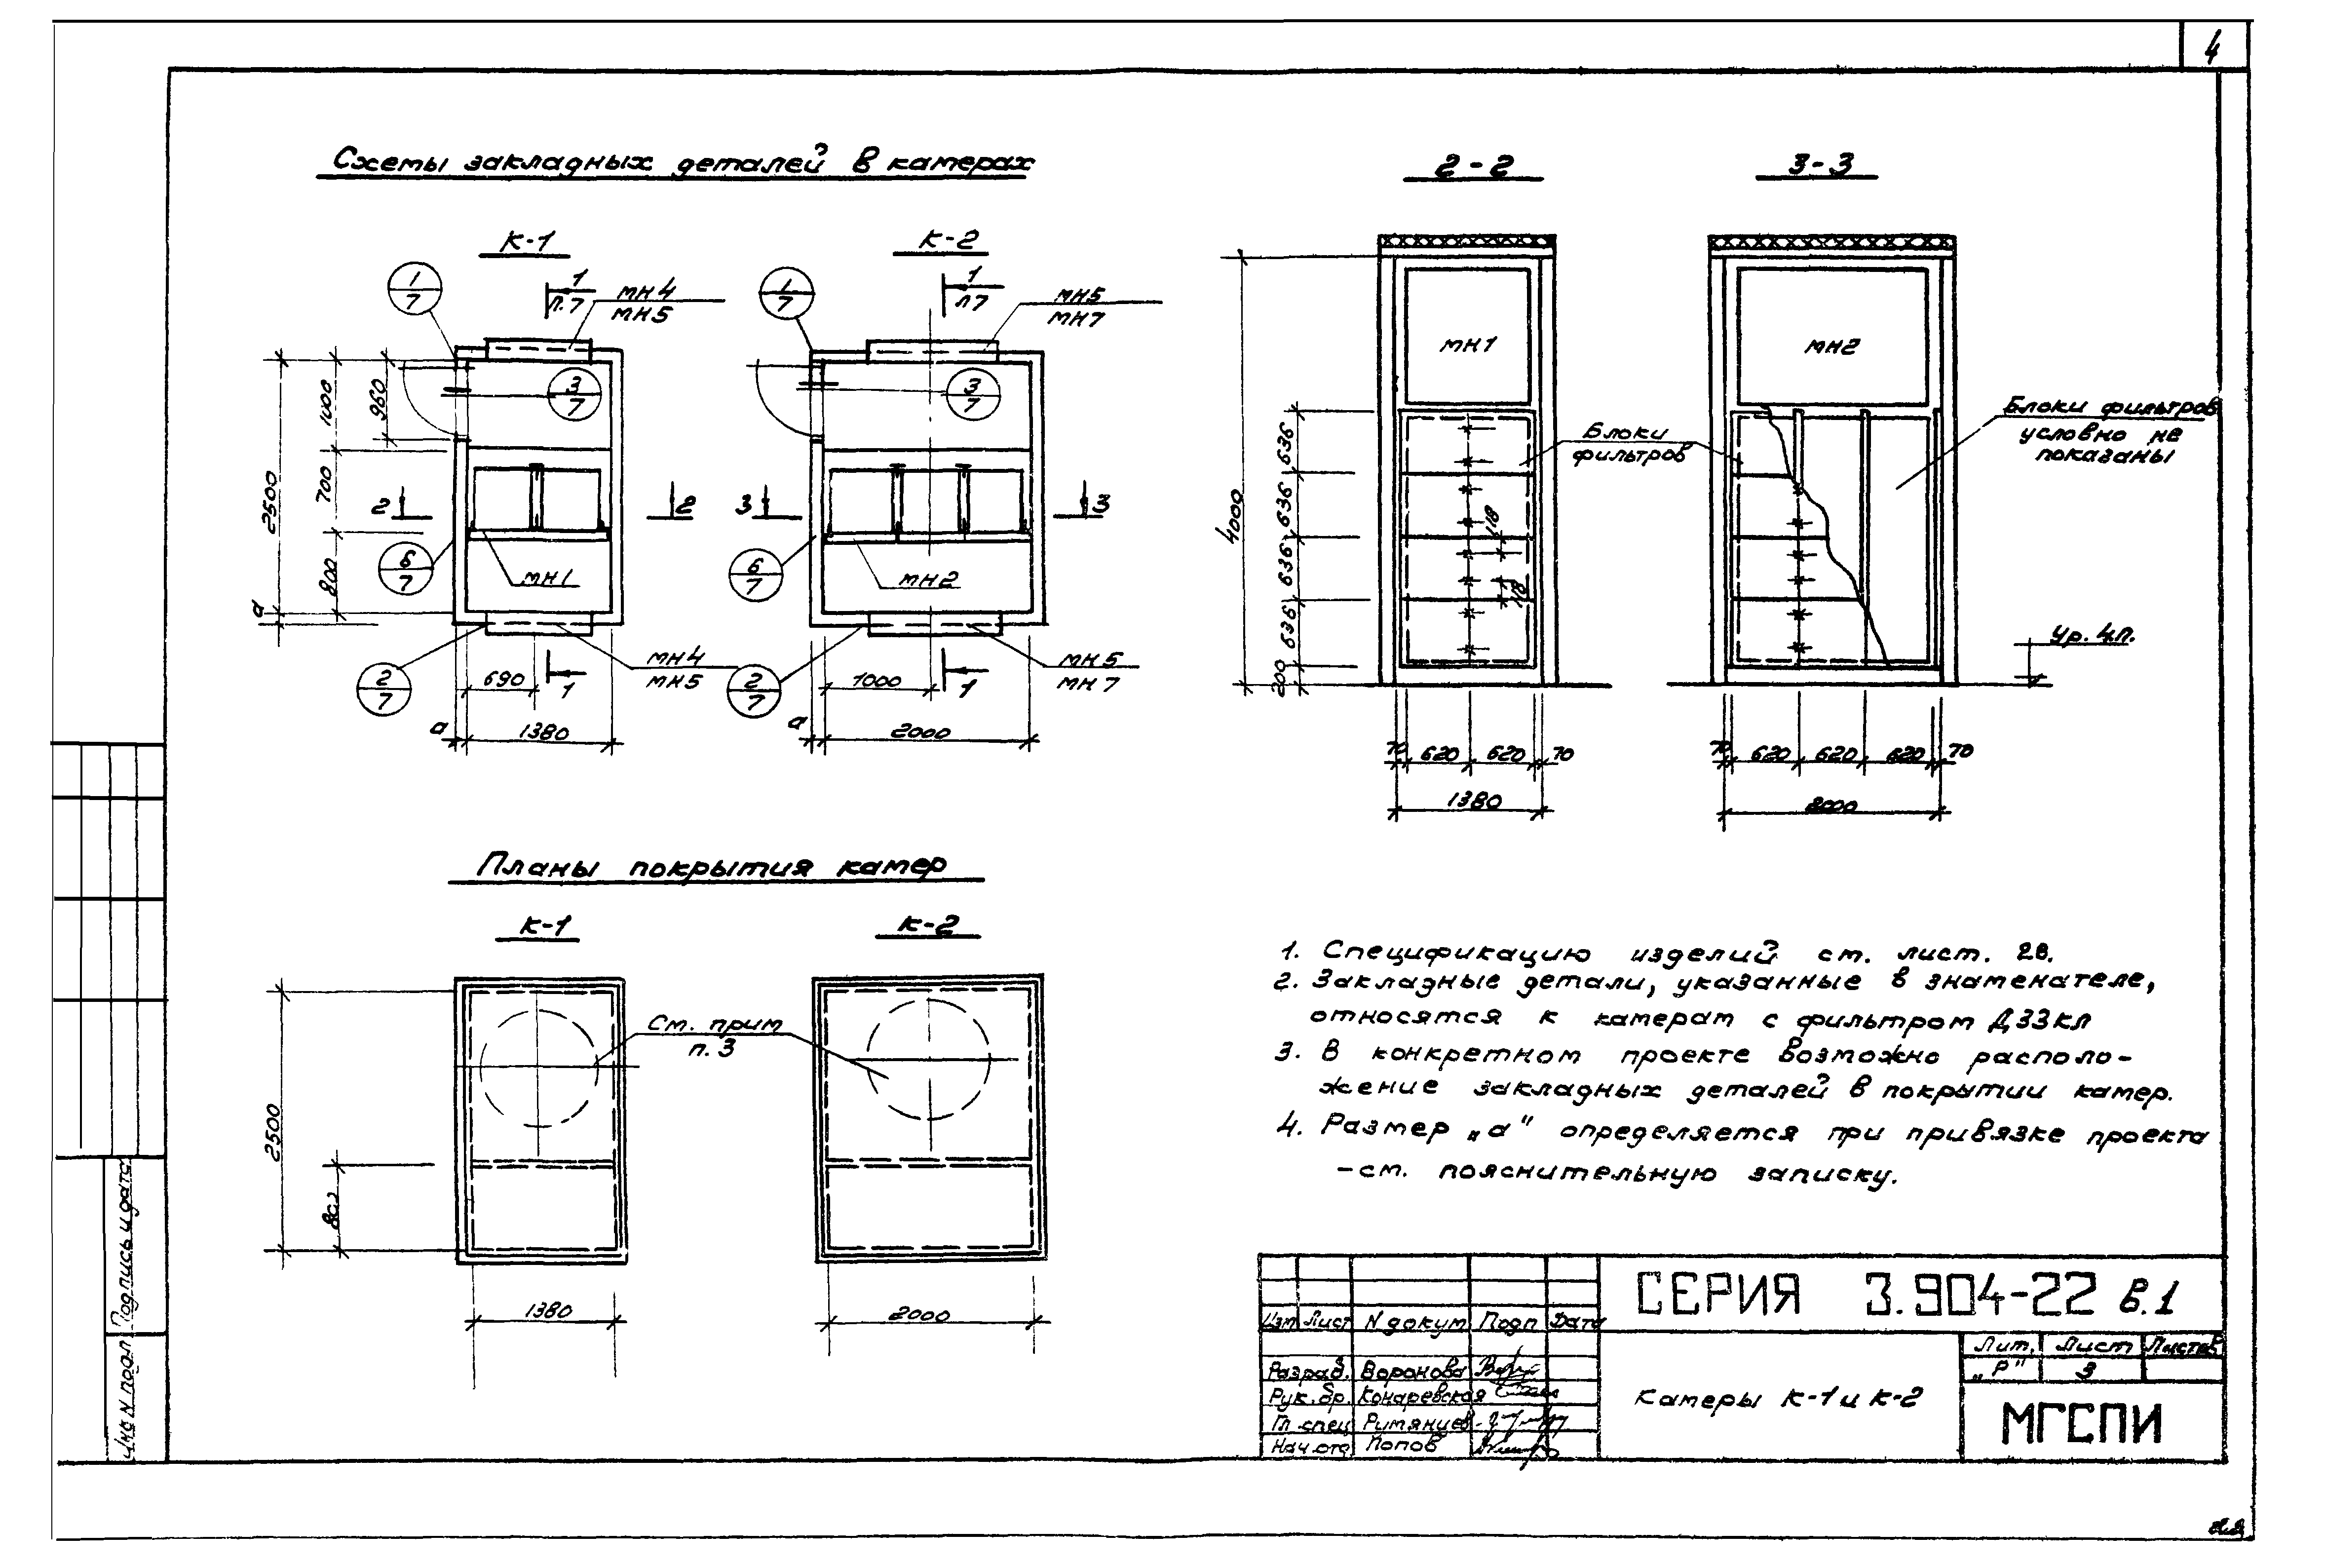 4
Схемы закладных деталей в камерах
К-1
К-2
1
7
1
л.7
мн4
мн5
1
7
1
л7
мн5
мн7
3
7
3
7
2500
1000
700
800
960
а
2
2
3
3
6
7
6
7
мн1
мн2
2
7
2
7
690
1
мн4
мн5
1000
1
мн5
мн7
а
1380
а
2000
2-2
3-3
мн1
мн2
4000
636
636
636
636
200
118
118
Блоки
фильтров
Блоки фильтров
условно не
показаны
Ур. ч.п.
70
620
620
70
1380
70
620
620
620
70
2000
Планы покрытия камер
К-1
К-2
См. прим
п. 3
2500
800
1380
2000
1. Спецификацию изделий см. лист. 28.
2. Закладные детали, указанные в знаменателе,
относятся к камерам с фильтром Д33КЛ
3. В конкретном проекте возможно располо-
жение закладных деталей в покрытии камер.
4. Размер „а" определяется при привязке проекта
-см. пояснительную записку.
СЕРИЯ 3.904-22 в.1
Изм Лист N докум Подп Дата
Разраб. Воронова
Рук. бр. Конаревская
Гл. спец Римянцев
Нач. отд Попов
Камеры К-1 и К-2
Лит. Лист Листов
„Р" 3
МГСПИ
Подпись и дата
Инв N подл